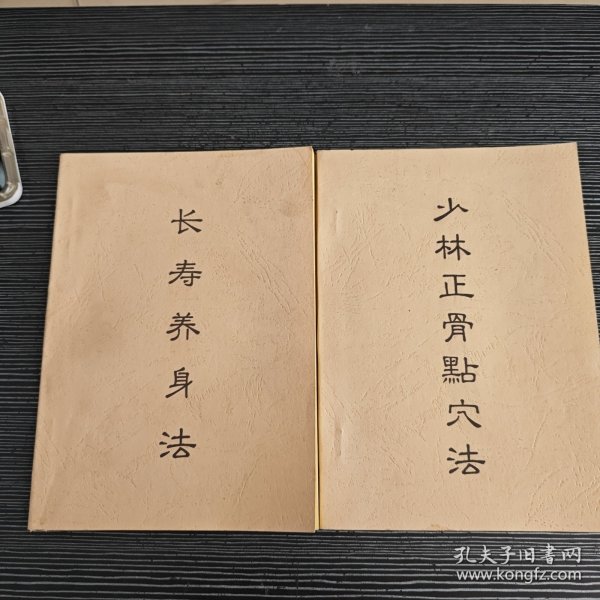 长寿养身法
少林正骨點穴法
孔夫子旧書网
www.kongfz.com